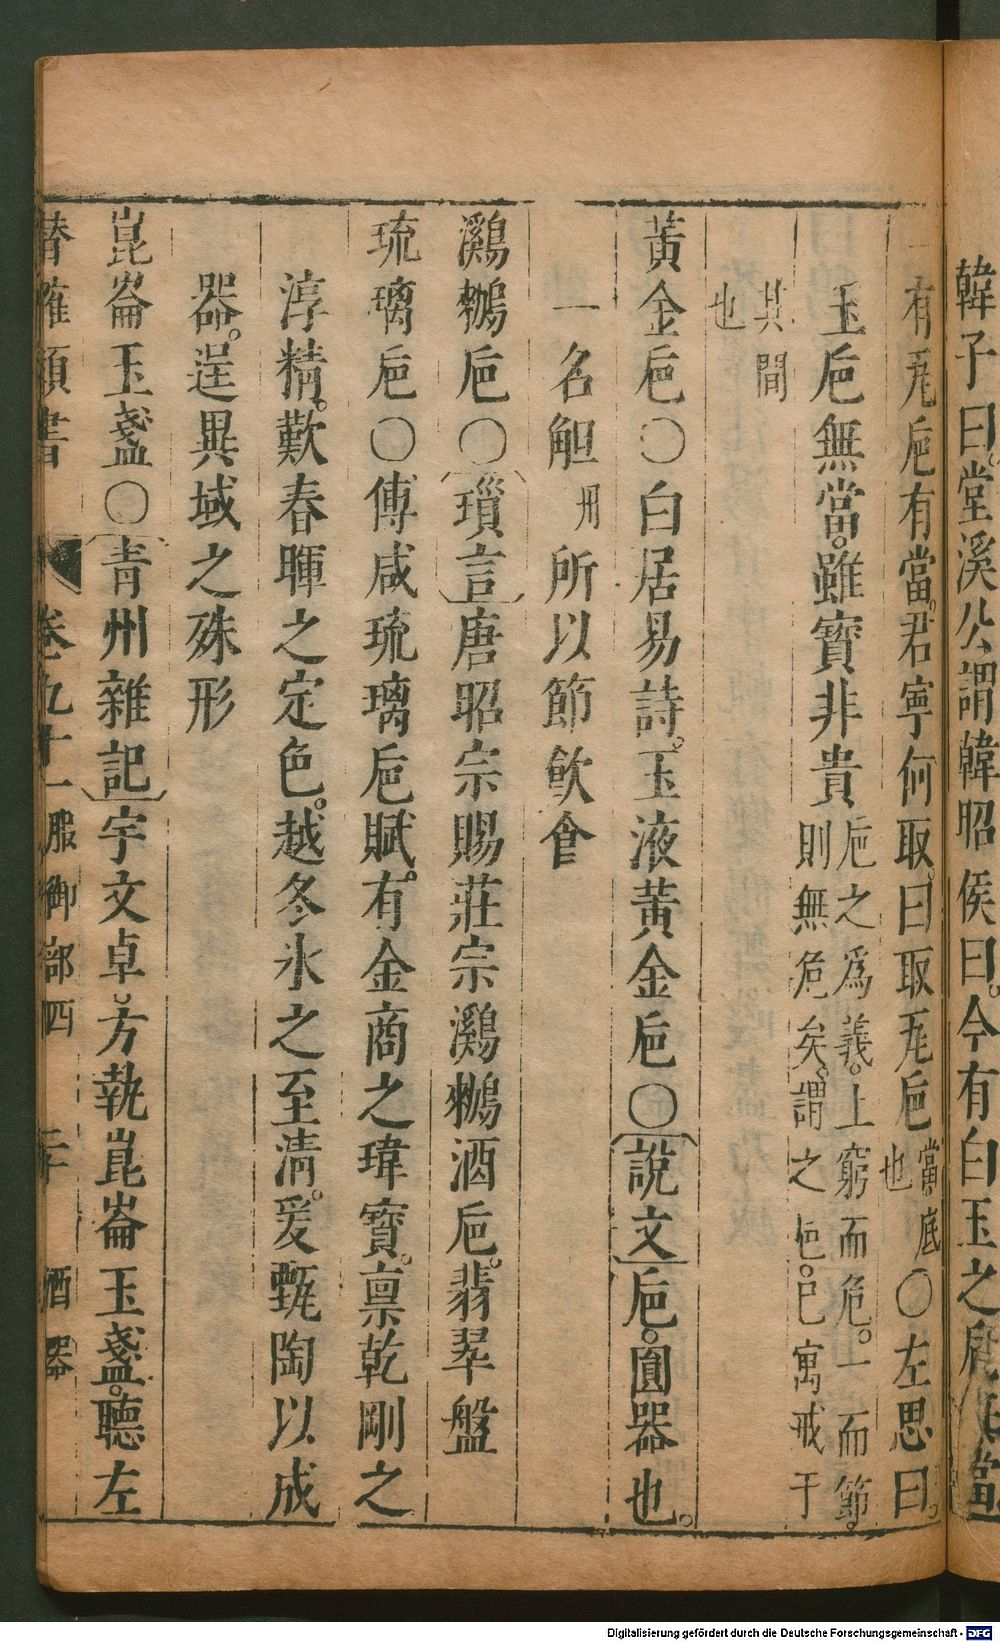 韓子曰堂溪公謂韓昭侯曰今有白玉之巵無當
有瓦巵有當君寧何取曰取瓦巵當底也〇左思曰
玉巵無當雖寶非貴巵之爲義上窮而危一而節則無危矣謂之巵巳寓戒于
其間也
黃金巵〇白居易詩玉液黃金巵〇說文巵圓器也
一名觛所以節飲食
鸂鶒巵〇瑣言唐昭宗賜莊宗鸂鶒酒巵翡翠盤
琉璃巵〇傅咸琉璃巵賦有金商之瑋寶稟乾剛之
淳精歎春暉之定色越冬氷之至清爰甄陶以成
器逞異域之殊形
崑崙玉盞〇青州雜記宇文卓方執崑崙玉盞聽左
潛確類書 卷九十一 服御部四 二十 酒器
Digitalisierung gefördert durch die Deutsche Forschungsgemeinschaft - DFG